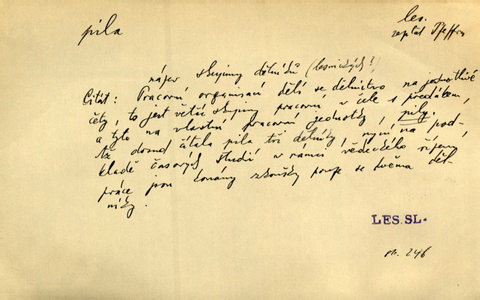 píla
les.
zeptat Pfeffra
název skupiny dělníků (lesnických?)
Citát: Pracovní organisací dělí se dělnictvo na jednotlivé
čety, to jest větší skupiny pracovní v čele s předákem,
a tyto na vlastní pracovní jednotky, pily.
Až dosud čítala pila tři dělníky, nyní na pod-
kladě časových studií v rámci vědeckého řízení
práce jsou konány zkoušky pouze se dvěma děl-
níky.
LES. SL.
str. 246